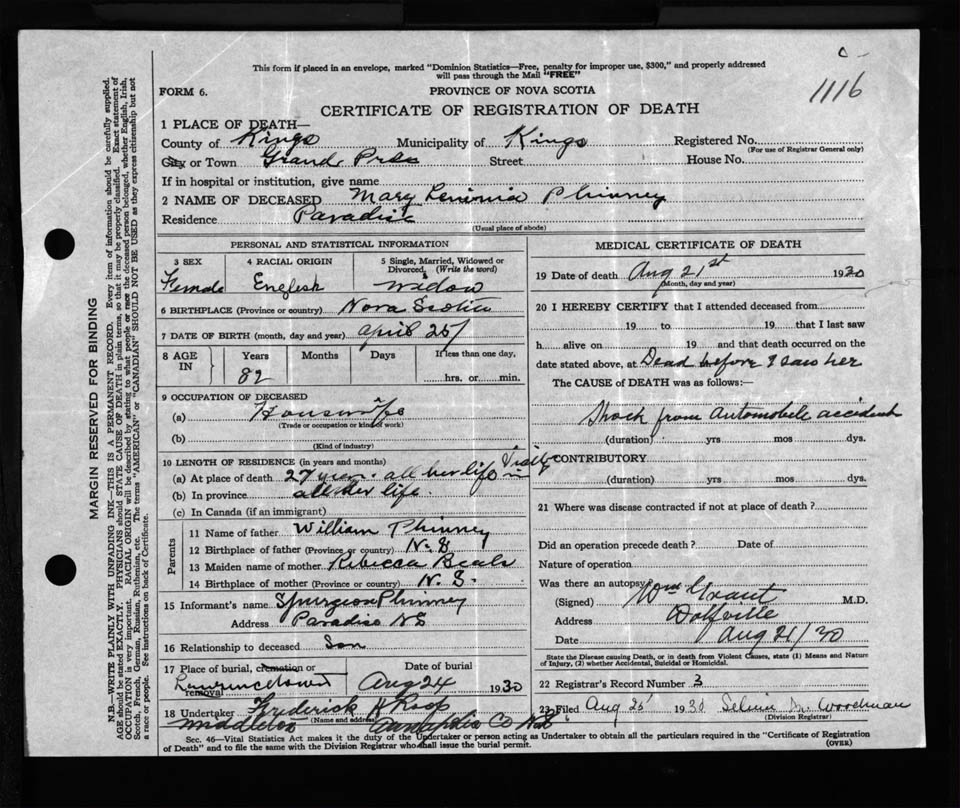 This form if placed in an envelope, marked "Dominion Statistics—Free, penalty for improper use, $300," and properly addressed
will pass through the Mail "FREE"
1116
FORM 6.
PROVINCE OF NOVA SCOTIA
CERTIFICATE OF REGISTRATION OF DEATH
1 PLACE OF DEATH—
County of Kings Municipality of Kings Registered No.
(For use of Registrar General only)
City or Town Grand Pree Street House No.
If in hospital or institution, give name
2 NAME OF DECEASED Mary Phinney
Residence Paradise
(Usual place of abode)
MARGIN RESERVED FOR BINDING
N.B.—WRITE PLAINLY WITH UNFADING INK—THIS IS A PERMANENT RECORD. Every item of information should be carefully supplied.
AGE should be stated EXACTLY. PHYSICIANS should STATE CAUSE OF DEATH in plain terms, so that it may be properly classified. Exact statement of
OCCUPATION is very important. RACIAL ORIGIN will be described by stating to what people or race the deceased person belonged, whether English, Irish,
Scotch, French, German, Russian, Ruthenian, etc. The terms "AMERICAN" or "CANADIAN" SHOULD NOT BE USED as they express citizenship but not
a race or people. See instructions on back of Certificate.
PERSONAL AND STATISTICAL INFORMATION
3 SEX 4 RACIAL ORIGIN 5 Single, Married, Widowed or
Divorced. (Write the word)
Female English Widow
6 BIRTHPLACE (Province or country) Nova Scotia
7 DATE OF BIRTH (month, day and year) April 25/
8 AGE IN Years Months Days If less than one day,
82 hrs. or min.
9 OCCUPATION OF DECEASED
(a) Housewife
(Trade or occupation or kind of work)
(b)
(Kind of industry)
10 LENGTH OF RESIDENCE (in years and months)
(a) At place of death 27 years all her life in
(b) In province all her life.
(c) In Canada (if an immigrant)
Parents
11 Name of father William Phinney
12 Birthplace of father (Province or country) N.S
13 Maiden name of mother Rebecca Beals
14 Birthplace of mother (Province or country) N.S.
15 Informant's name Spurgeon Phinney
Address Paradise NS
16 Relationship to deceased Son
17 Place of burial, cremation or removal Date of burial
Lawrencetown Aug 24 1930
18 Undertaker Frederick H Roop
(Name and address)
Middleton Annapolis Co N.S.
MEDICAL CERTIFICATE OF DEATH
19 Date of death Aug 21st 1930
(Month, day and year)
20 I HEREBY CERTIFY that I attended deceased from
19 to 19 that I last saw
h alive on 19 and that death occurred on the
date stated above, at Dead before I saw her
The CAUSE OF DEATH was as follows:
Shock from Automobile accident
(duration) yrs mos dys.
CONTRIBUTORY
(duration) yrs mos dys.
21 Where was disease contracted if not at place of death?
Did an operation precede death? Date of
Nature of operation
Was there an autopsy
(Signed) Wm Grant M.D.
Address Wolfville
Date Aug 21/30
State the Disease causing Death, or in death from Violent Causes, state (1) Means and Nature
of Injury, (2) whether Accidental, Suicidal or Homicidal.
22 Registrar's Record Number 3
23 Filed Aug 25 1930 Woodman
(Division Registrar)
Sec. 46—Vital Statistics Act makes it the duty of the Undertaker or person acting as Undertaker to obtain all the particulars required in the "Certificate of Registration
of Death" and to file the same with the Division Registrar who shall issue the burial permit.
(OVER)